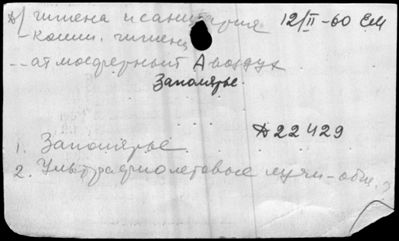 А) гигиена и санитария 12/II-60 ЕМ
- комм. гигиена
- атмосферный А воздух
Заполярье.
А22429
1. Заполярье.
2. Ультрафиолетовые лучи - общ.